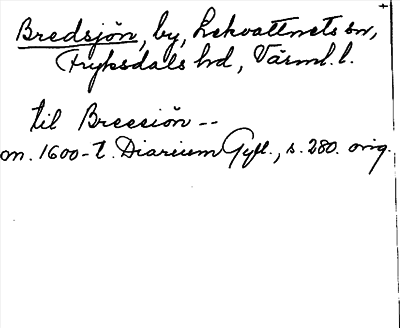 Bredsjön, by, Lekvattnets sn,
Fryksdals hd, Värml. l.
til Breesiön --
om. 1600-t. Diarium Gyll., s. 280. orig.